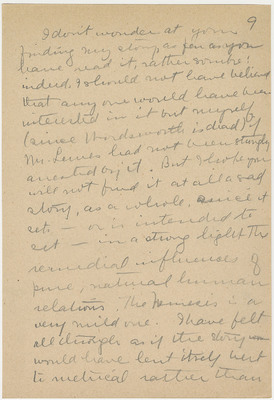 9
I don't wonder at your
finding my story as far as you
have read it, rather sombre;
indeed I should not have believed
that any one would have been
interested in it but myself
(since Wordsworth is dead) if
Mr. Lewes had not been strongly
arrested by it. But I hope you
will not find it at all a sad
story, as a whole, since it
sets — or is intended to
set — in a strong light the
remedial influences of
pure, natural human
relations. The Nemesis is a
very mild one. I have felt
all through as if the story
would have lent itself best
to metrical rather than